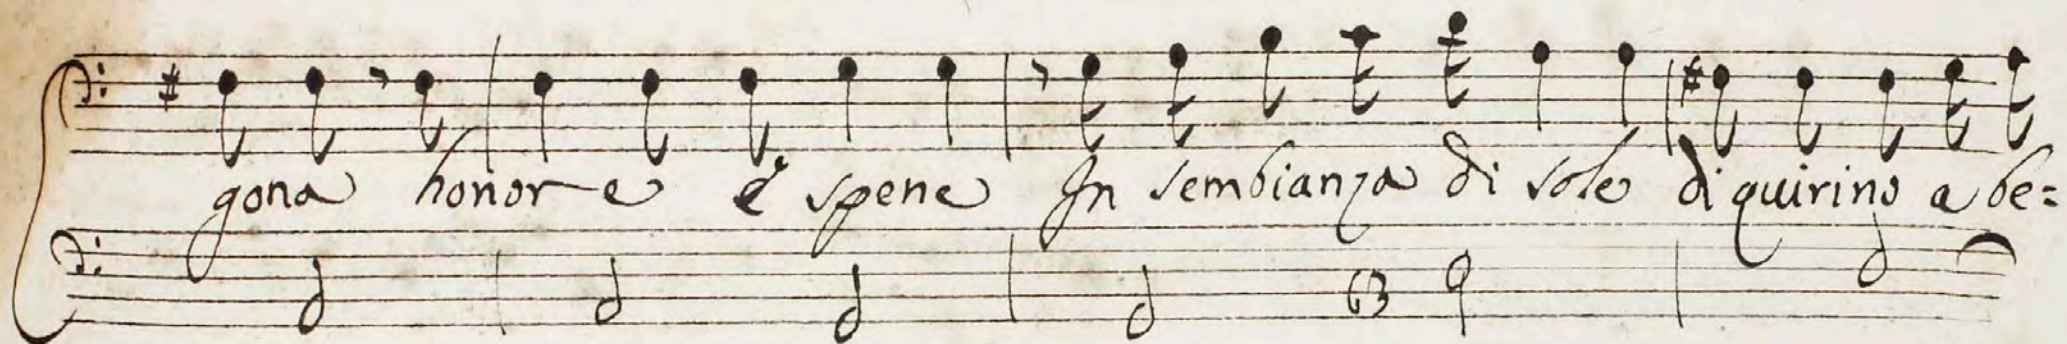 gona honor e è spene In sembianza di sole di quirino a be=